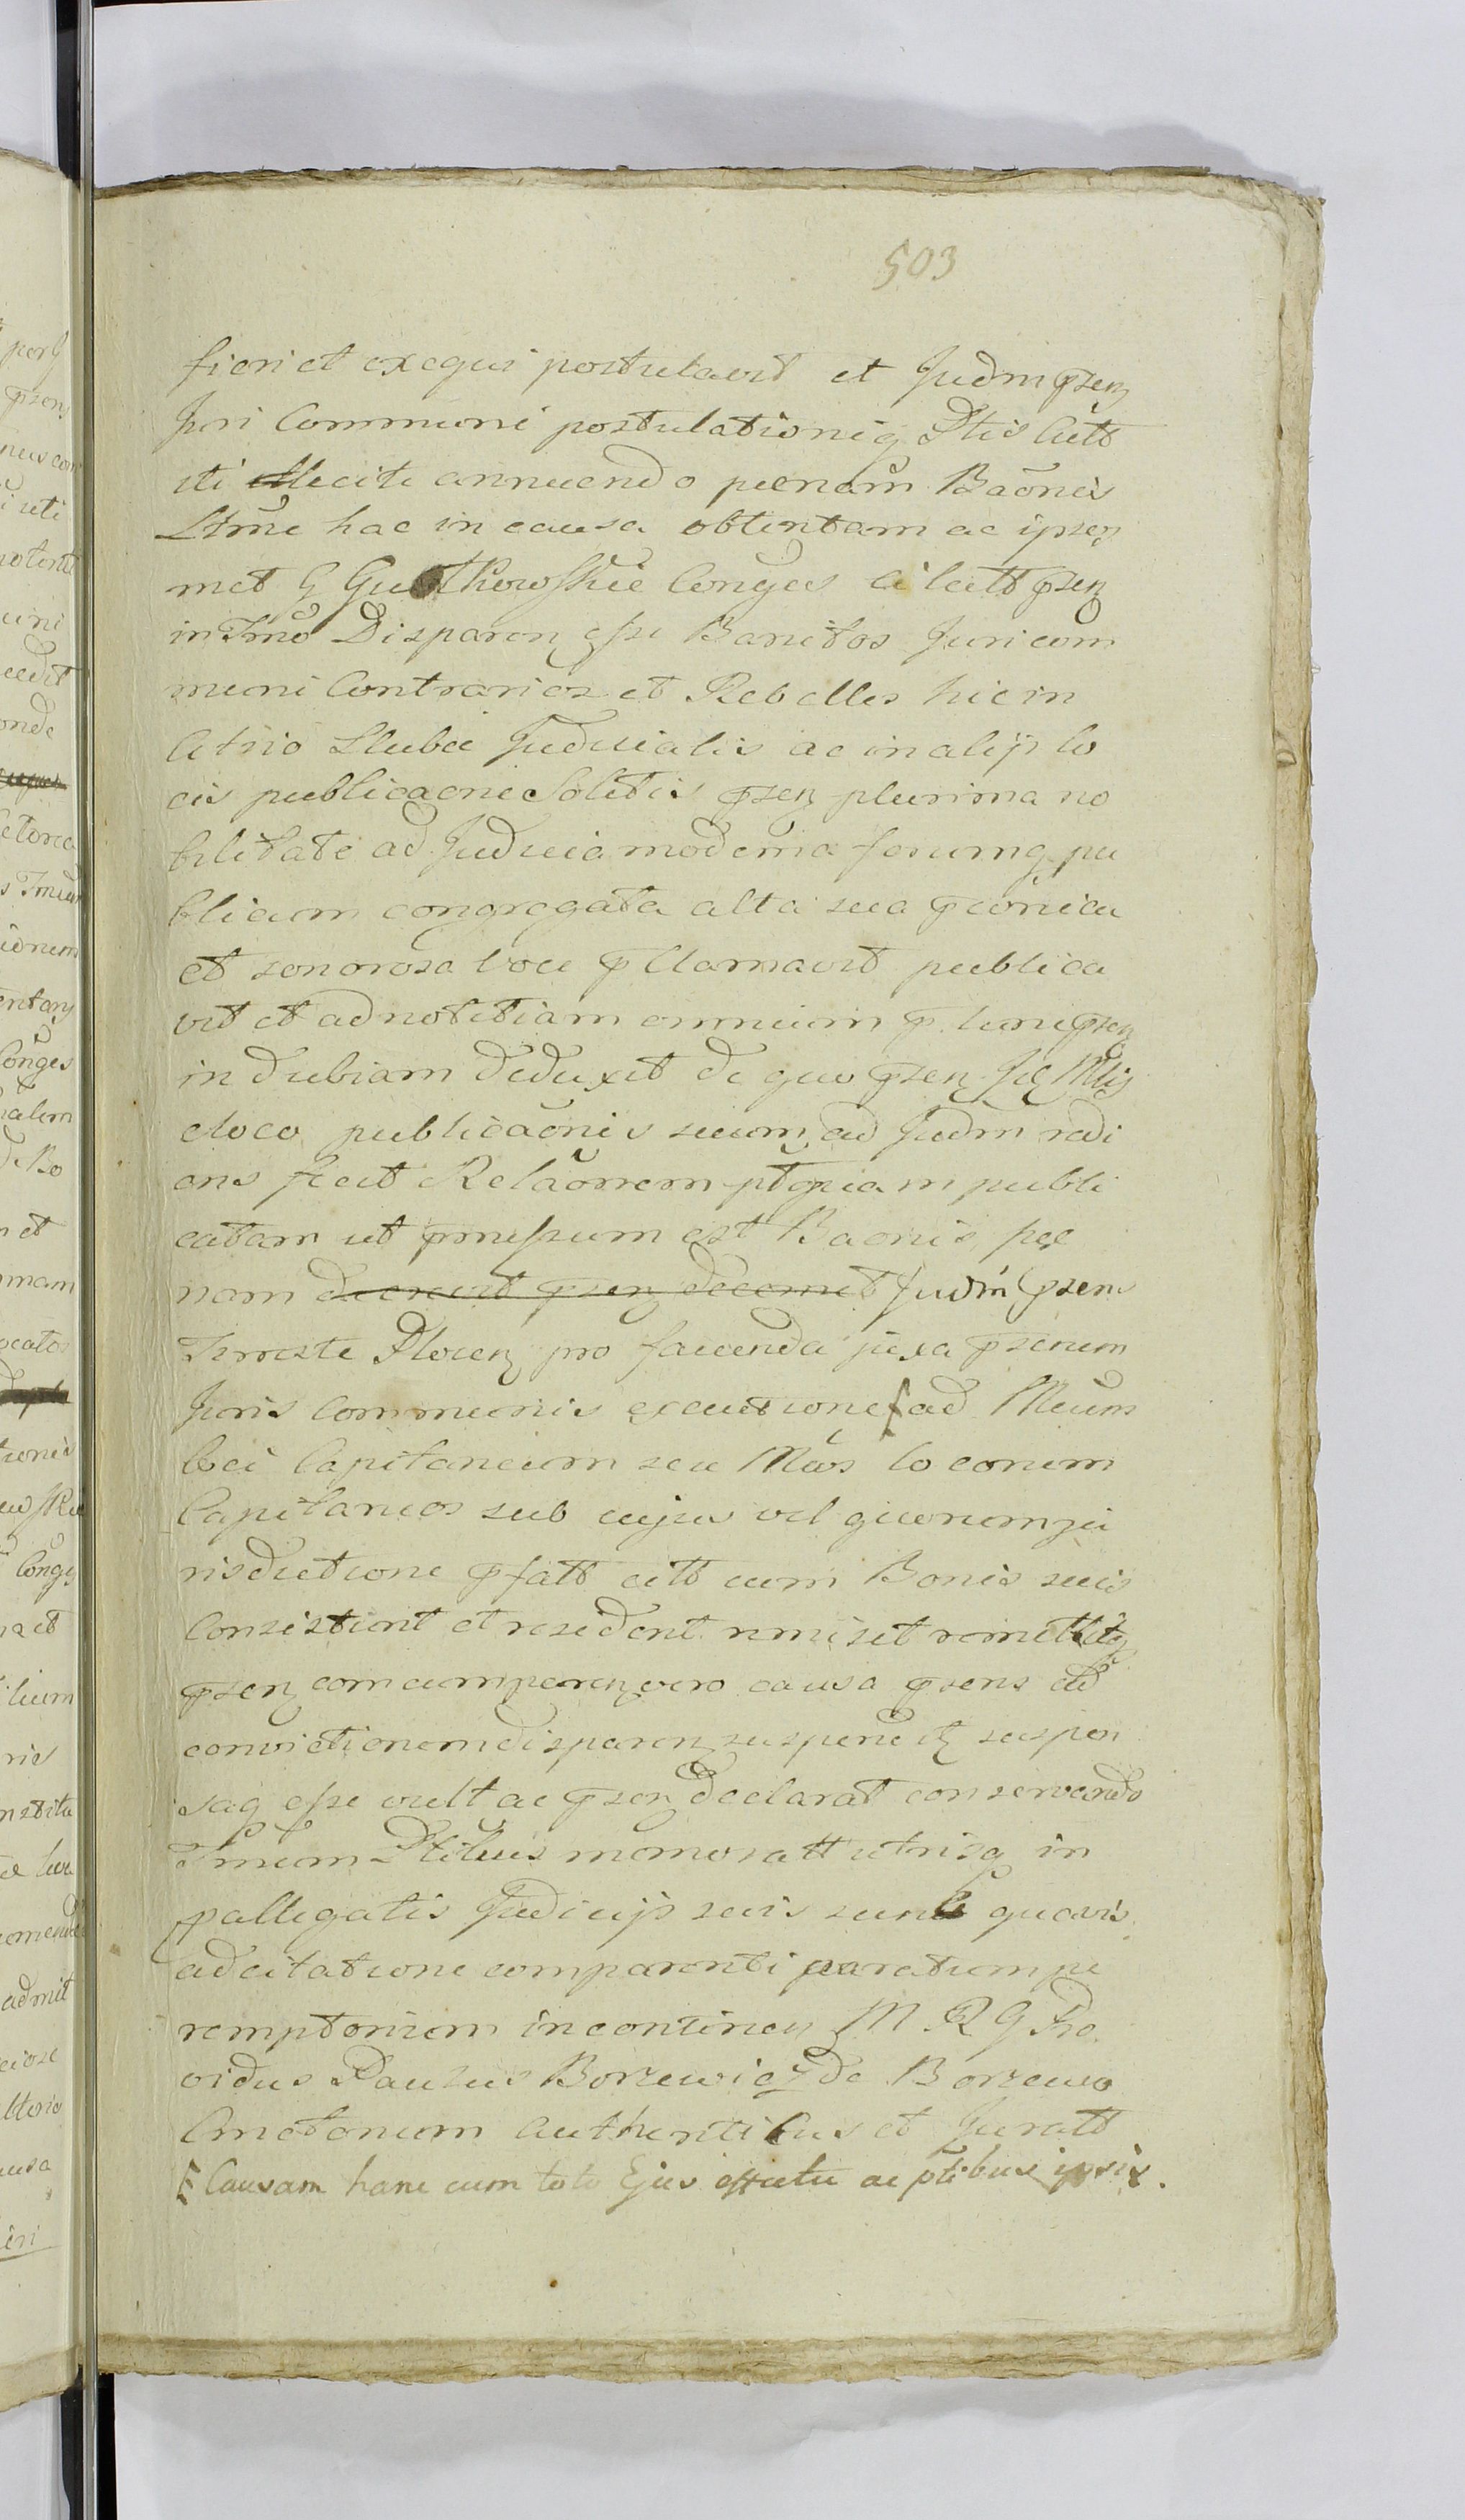 503
fieri et exequi postulavit et Judm psen
Juri Communi postulationiq Ptis Citt
uti licite annuendo poenam Baonis
Ltme hac in causa obtentam ac ipsos
met G Gutkowskie Conges Citatt psen
in Tmo Disparen esse Banitos Juri com
muni Contrarios et Rebelles hic in
Atrio Stubae Judicialis ac in alijs lo
cis publicaoni Solitis psen plurima no
bilitate ad Judicia moderna forumq pu
blicum congregata alta sua praeconica
et sonorosa voce pclamavit publica
vit et ad notitiam omnium
in dubiam deduxit de quo psen
e loco publicaonis suum ad Judm redi
ens fecit Relaonem publi
catam ut pmissum est Baonis poe
nam decrevit psen decernit Judm psens
Terreste Plocen pro facienda juxa pscriem
Juris Communis executione ad Mcum
loci Capitaneum seu Mcos locorum
Capitaneos sub cujus vel quorum ju
risdictione pfatt citt cum Bonis suis
Consistunt et resident rmisit remittitq
psen com cum paren vero causa psens ad
convictionem disparen suspendit suspen
saq esse vult ac psen declarat conservando
Tmum Ptibus memoratt utrisq in
pallegatis Judicijs suis sine quavis
adcitatione comparenti paratum pe
remptorium incontinen M R G Pro
vidus Paulus Borzewicz de Borzewo
Cmetonum Authenticus et Juratt
Causam hanc cum toto Ejus effectu ac ptibus ipsis.